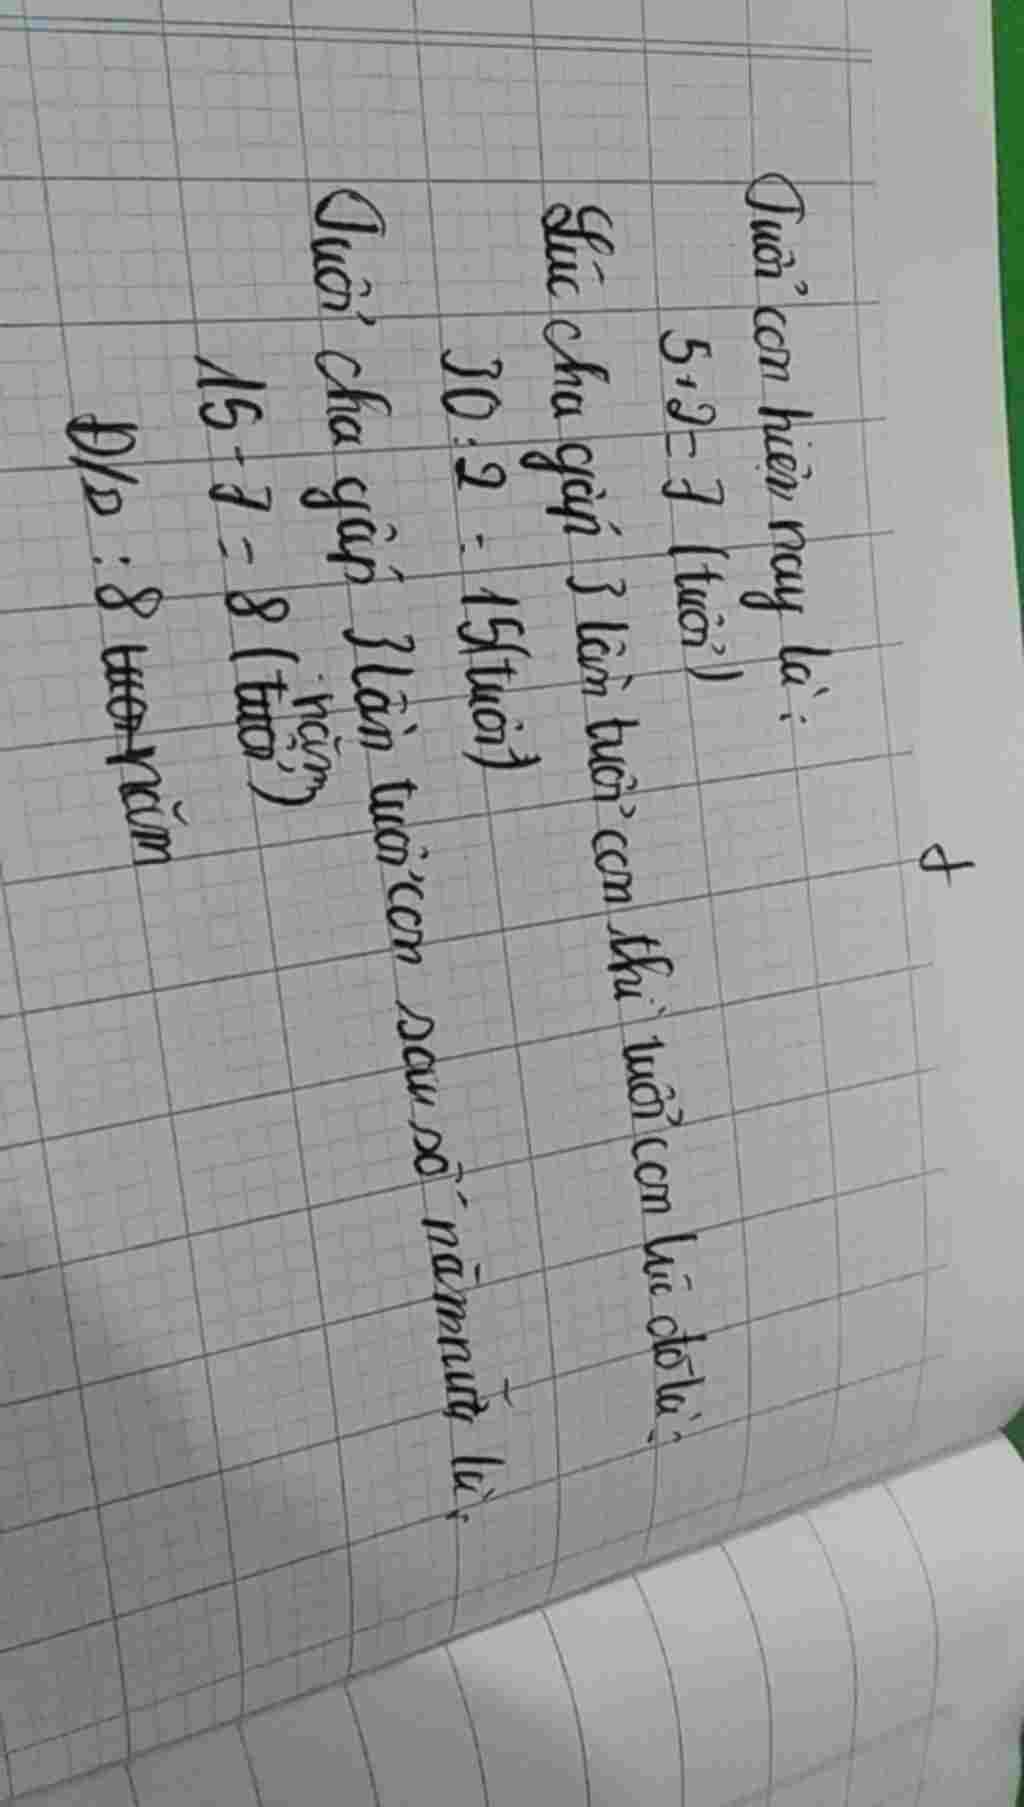 Tuổi con hiện nay là:
5+2=7 (tuổi)
Lúc cha gấp 3 lần tuổi con thì tuổi con lúc đó là:
30:2=15(tuổi)
Tuổi cha gấp 3 lần tuổi con sau số năm nữa là:
năm
15-7=8(tuổi)
Đ/s: 8 tuổi năm